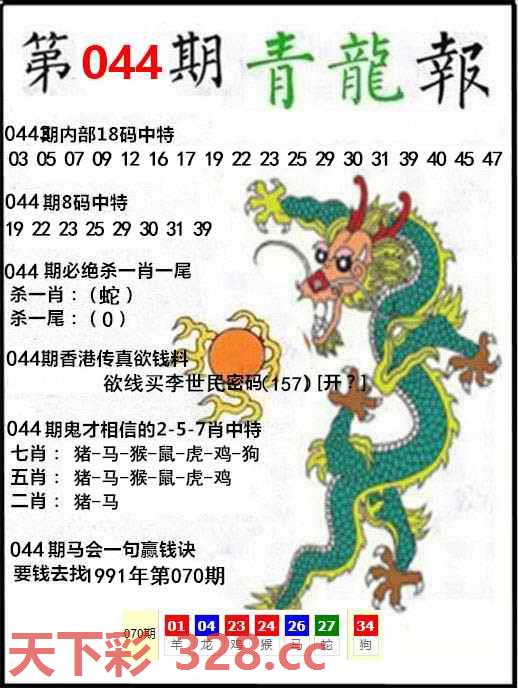 第044期青龍報
044期内部18码中特
03 05 07 09 12 16 17 19 22 23 25 29 30 31 39 40 45 47
044期8码中特
19 22 23 25 29 30 31 39
044 期必绝杀一肖一尾
杀一肖：（蛇）
杀一尾：（0）
044期香港传真欲钱料
欲线买李世民密码(157)[开？]
044期鬼才相信的2-5-7肖中特
七肖： 猪-马-猴-鼠-虎-鸡-狗
五肖： 猪-马-猴-鼠-虎-鸡
二肖： 猪-马
044期马会一句赢钱诀
要钱去找1991年第070期
070期 01 04 23 24 26 27 34
羊 龙 鸡 猴 马 蛇 狗
天下彩 328.cc